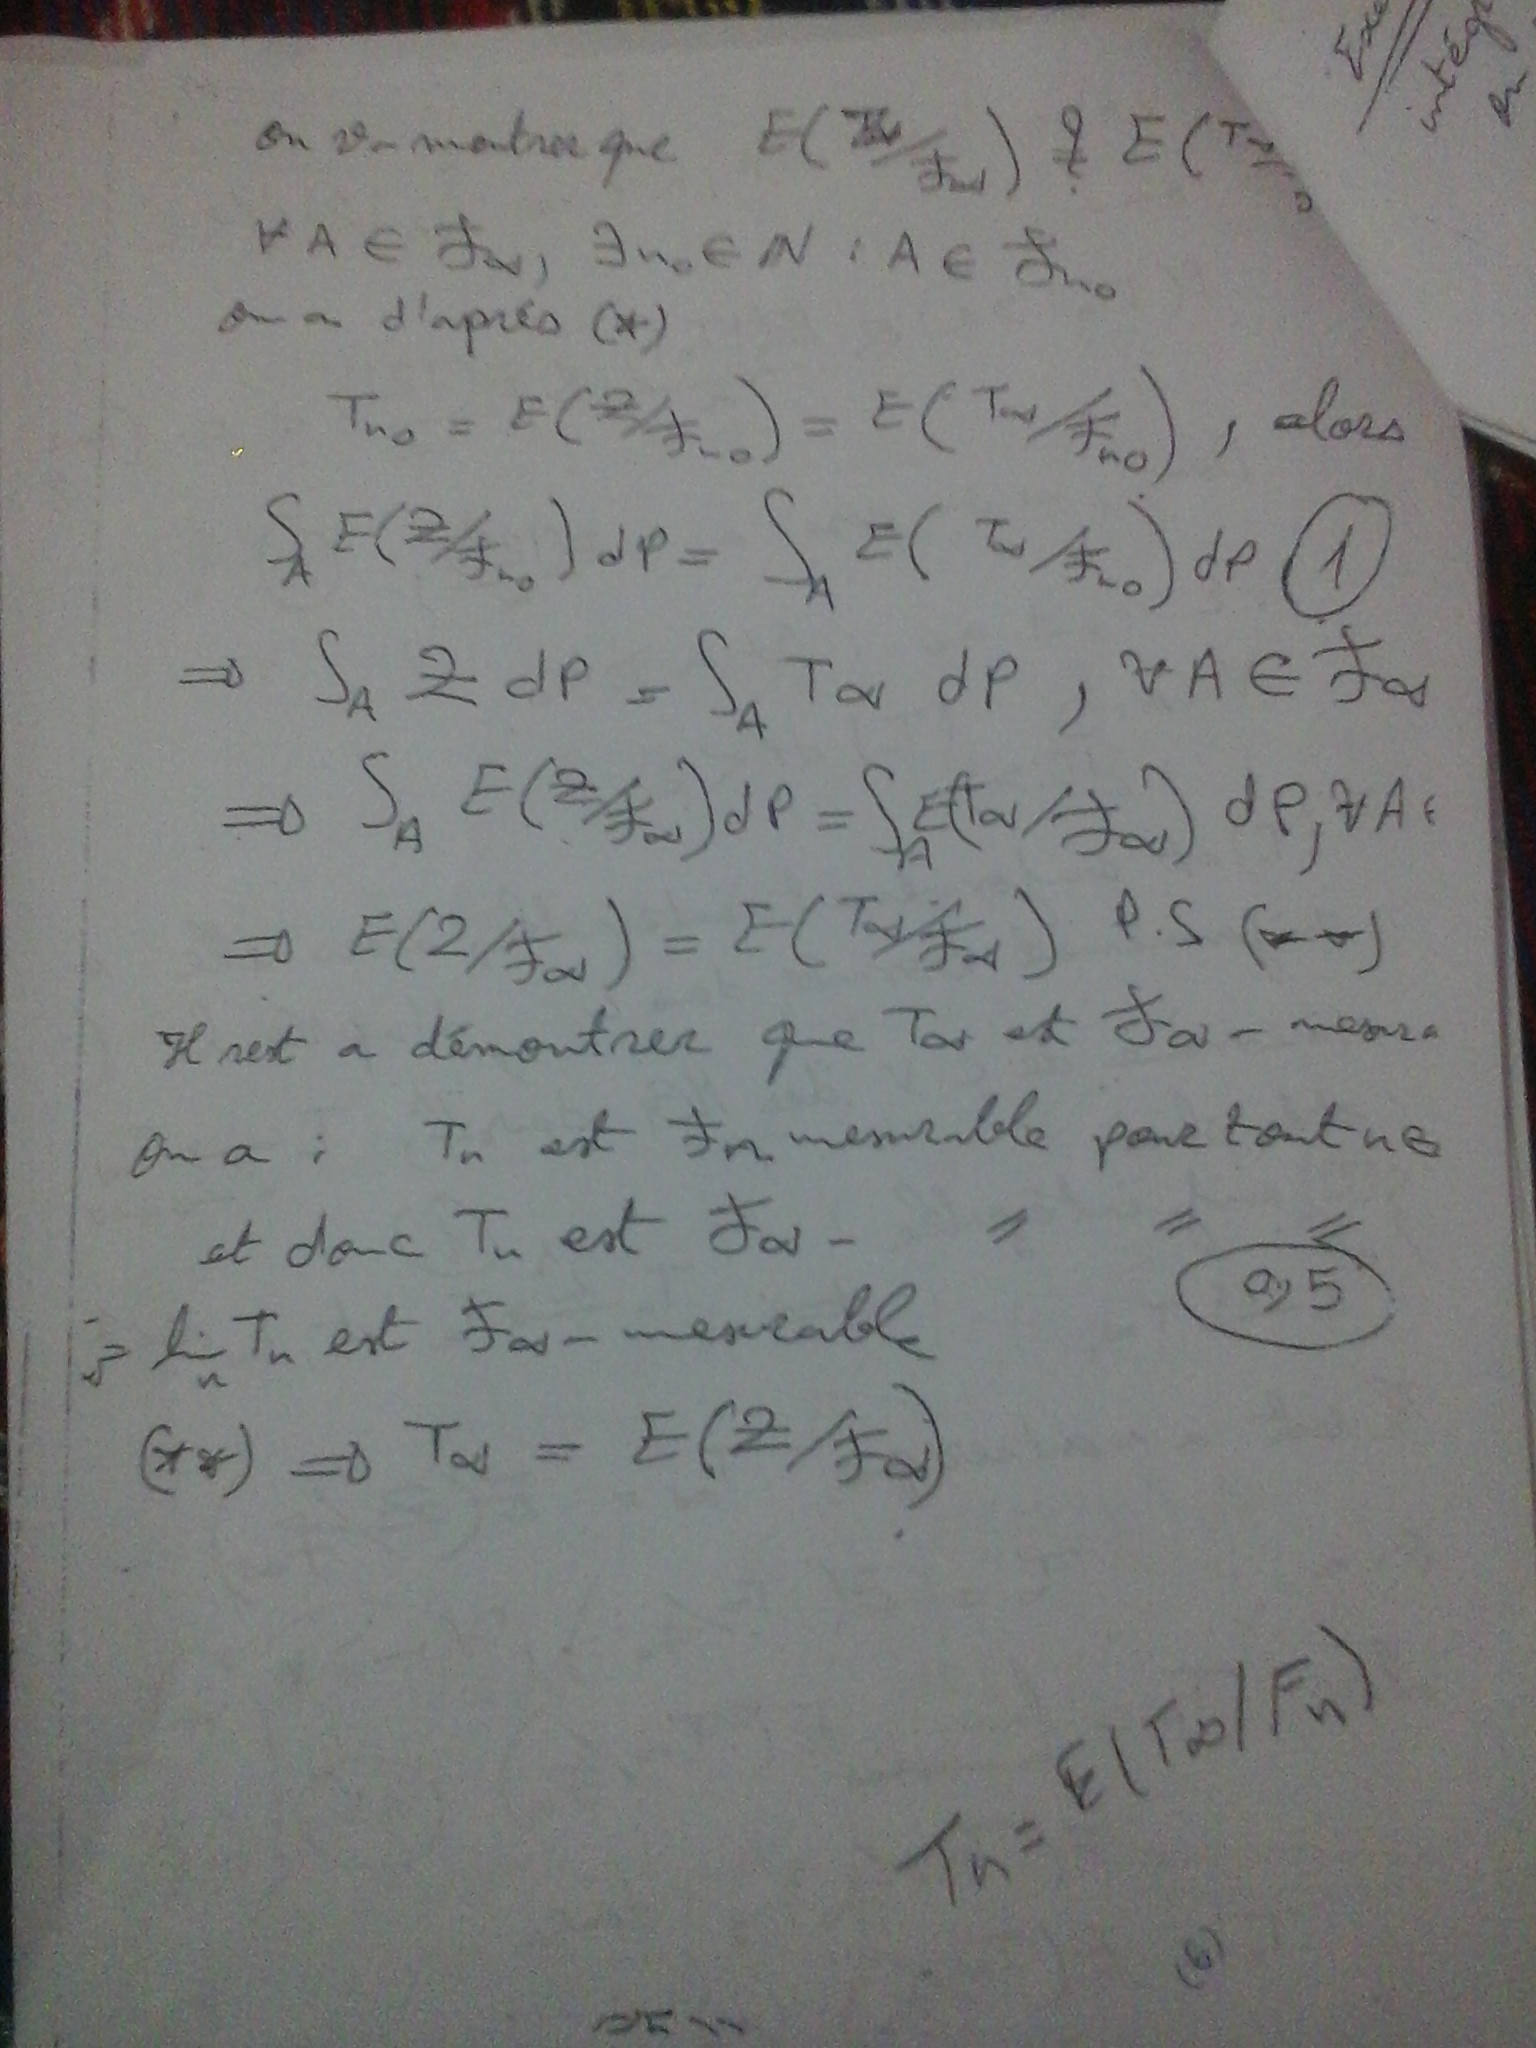 Exe
intégr
on
on va montrer que E(Z/F∞) ? E(T∞/
∀A ∈ F∞, ∃n₀ ∈ N : A ∈ Fn₀
on a d'après (*)
Tn₀ = E(Z/Fn₀) = E(T∞/Fn₀), alors
∫_A E(Z/Fn₀) dP = ∫_A E(T∞/Fn₀) dP ①
⇒ ∫_A Z dP = ∫_A T∞ dP, ∀A ∈ F∞
⇒ ∫_A E(Z/F∞) dP = ∫_A E(T∞/F∞) dP, ∀A ∈
⇒ E(Z/F∞) = E(T∞/F∞) P.S (**)
Il rest a démontrer que T∞ est F∞ - mesura
on a : Tn est Fn mesurable pour tout n ∈
et donc Tn est F∞ - // // //
0,5
= lim_n Tn est F∞ - mesurable
(**) ⇒ T∞ = E(Z/F∞)
Tn = E(T∞/Fn)
(6)